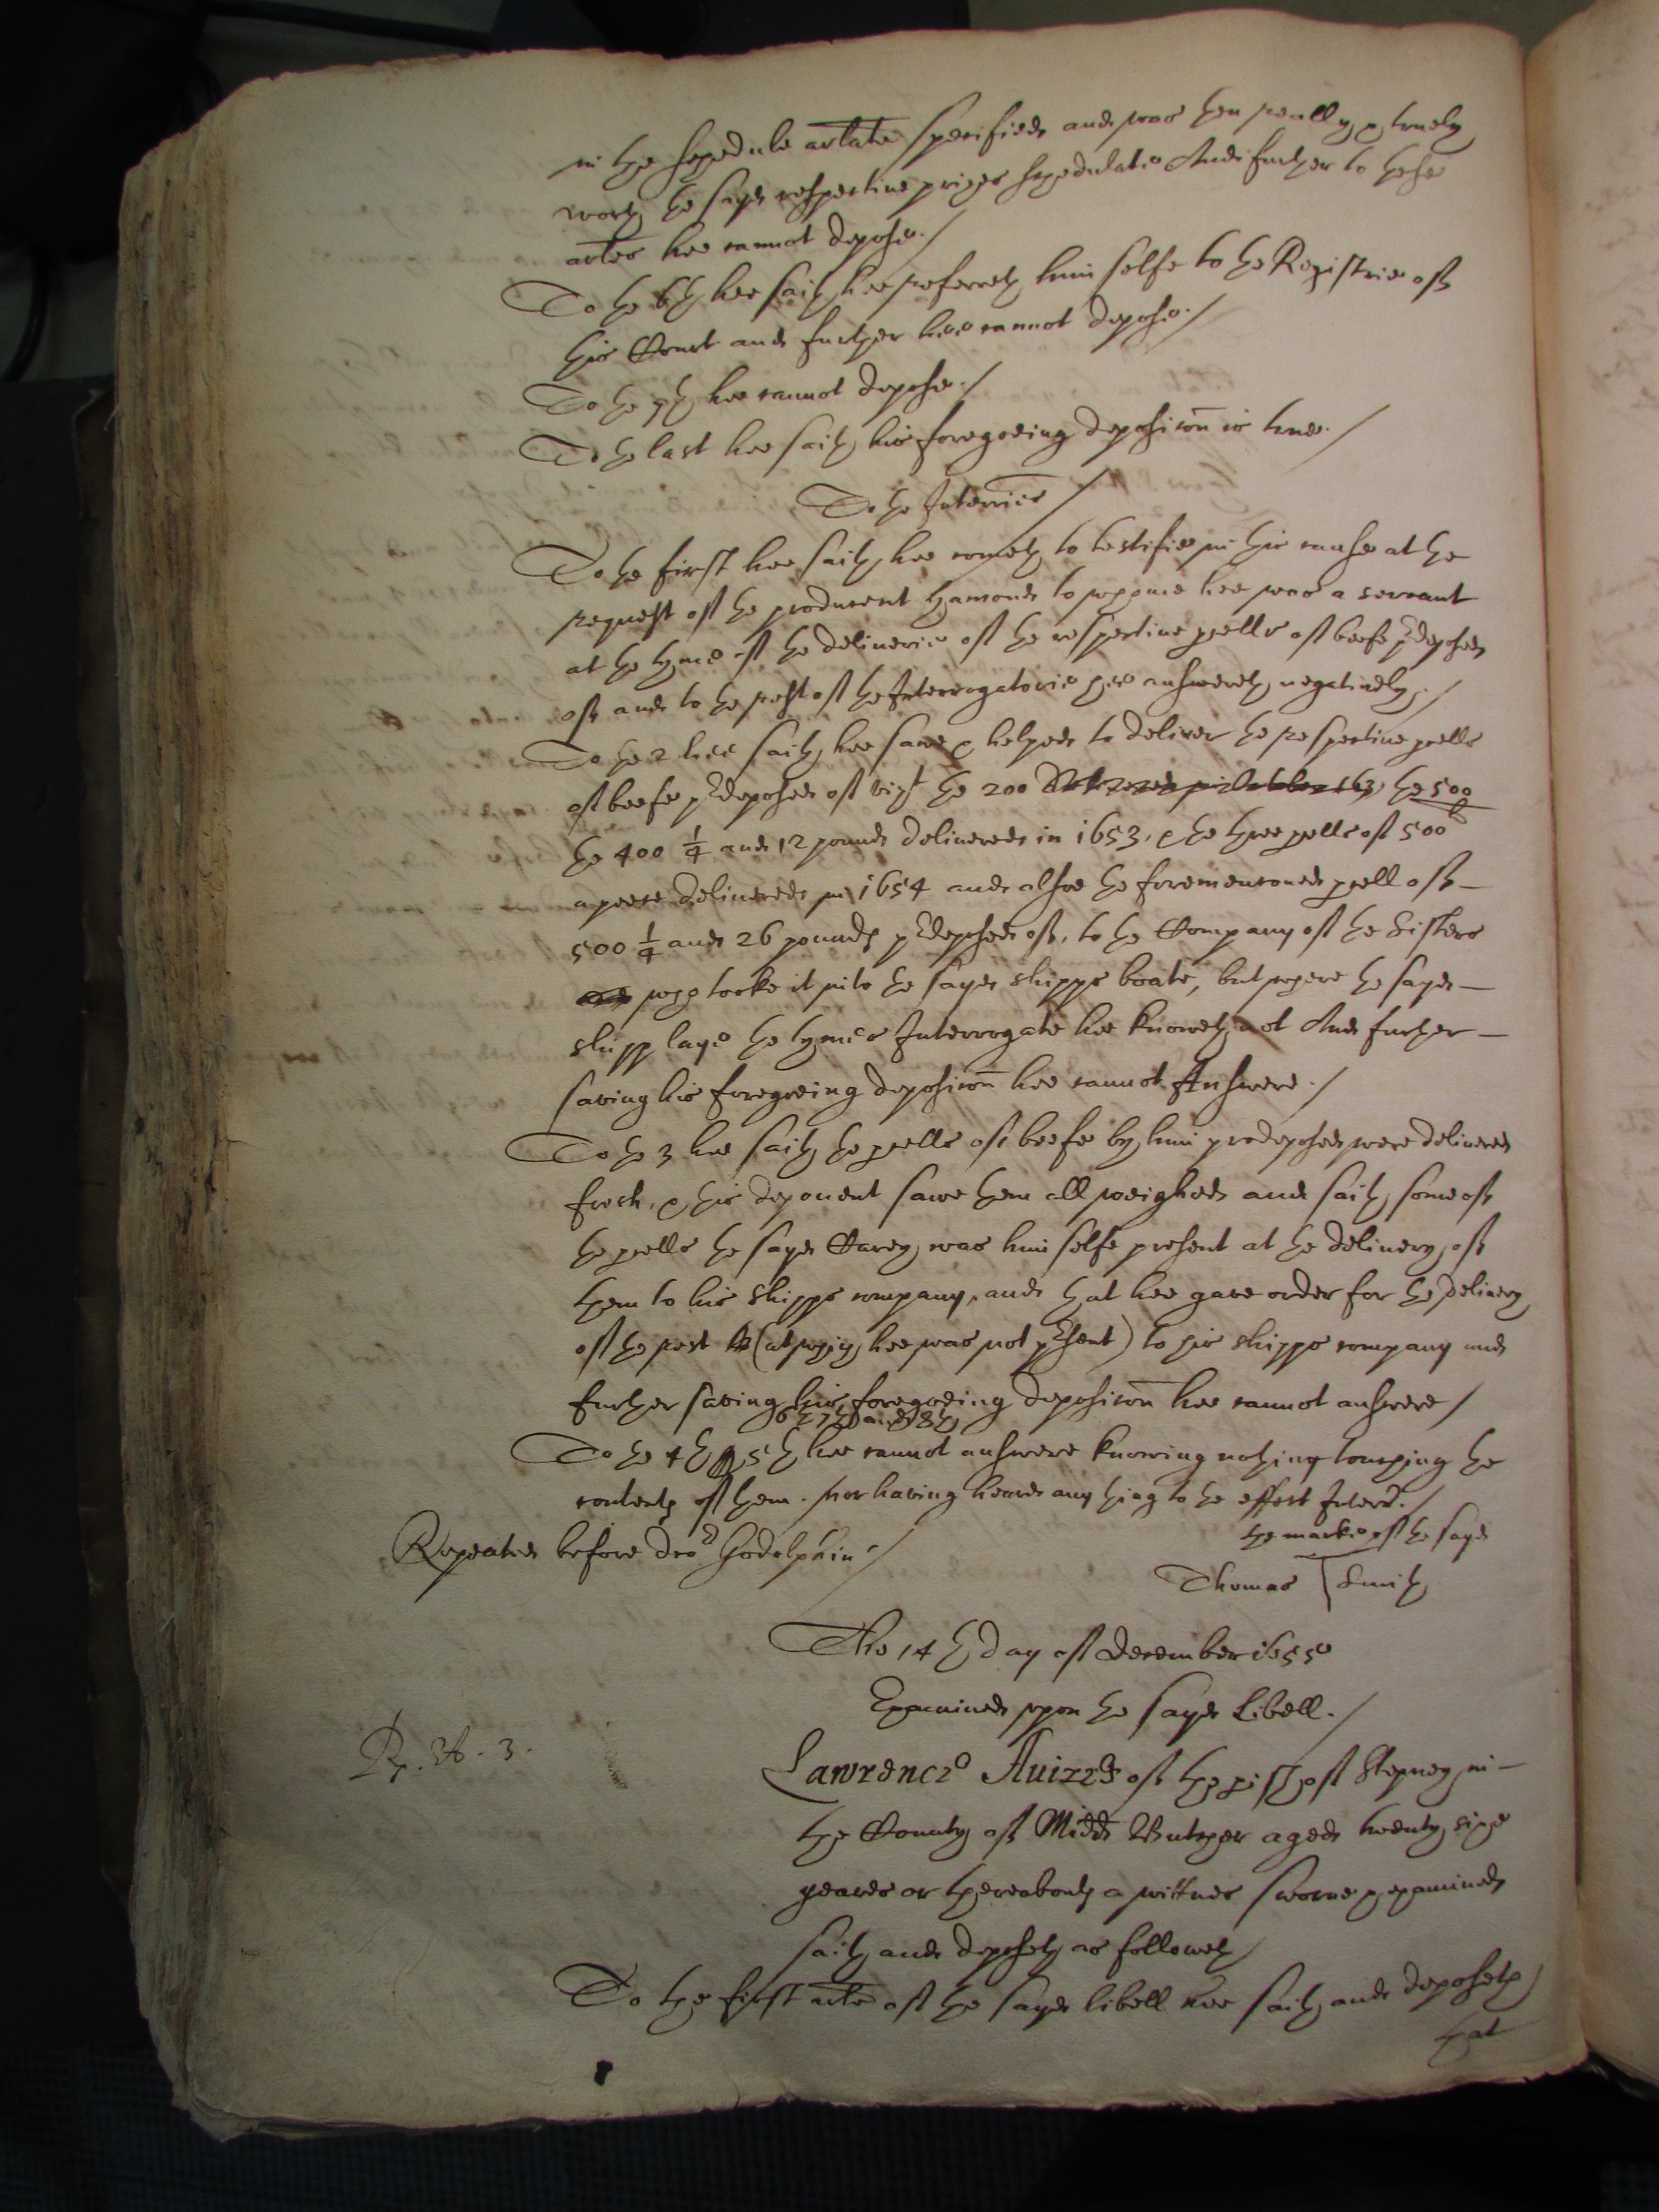 in the schedule arlate specified and was then really & truely
worth the sayd respective prizes schedulate And further to these
arles hee cannot depose./
To the 6th hee saith hee referreth him selfe to the Registrie of
this Court and further hee cannot depose./
To the 7th hee cannot depose./
To the last hee saith his foregoeing deposicon is true./
To the Interries /
To the first hee saith hee cometh to testifie in this cause at the
request of the producent Hamond to whome hee was a servant
at the tyme of the deliverie of the respective pcells of beefe prdeposed
of and to the rest of the Interrogatorie hee answereth negatively./
To the 2 hee saith hee sawe & helped to deliver the respective pcells
of beefe prdeposed of vizt the 200 the 500
the 400 1/4 and 12 pounds delivered in 1653. & the three pcells of 500
apeece delivered in 1654 and alsoe the foremencioned pcell of
500 1/4 and 26 pounds prdeposed of, to the Company of the Sisters
who tooke it into the sayd shipps boate, but where the sayd
shipp laye the tymes Interrogate hee knoweth not And further
saving his foregoeing deposicon hee cannot Answere./
To the 3 hee saith the pcells of beefe by him predeposed were delivered
fresh, & this deponent sawe them all weighed and saith some of
the pcells the sayd Carey was him selfe present at the delivery of
them to his shipps company, and that hee gave order for the delivery
of the rest (at which hee was not prsent) to his shipps company and
further saving his foregoeing deposicon hee cannot answere /
6th 7th and 8th
To the 4th 5th hee cannot answere knowing nothing touching the
contents of them. nor having heard any thing to the effect Interr./
Repeated before docr Godolphin /
the marke of the sayd
Thomas Smith
The 14th day of December 1655
Examined upon the sayd Libell./
Rp. A. 3.
Lawrence of the pish of Stepney in
the County of Midd Butcher aged twenty sixe
yeares or thereabouts a wittnes sworne & examined
saith and deposeth as followeth /
To the first arle of the sayd libell hee saith and deposeth
that